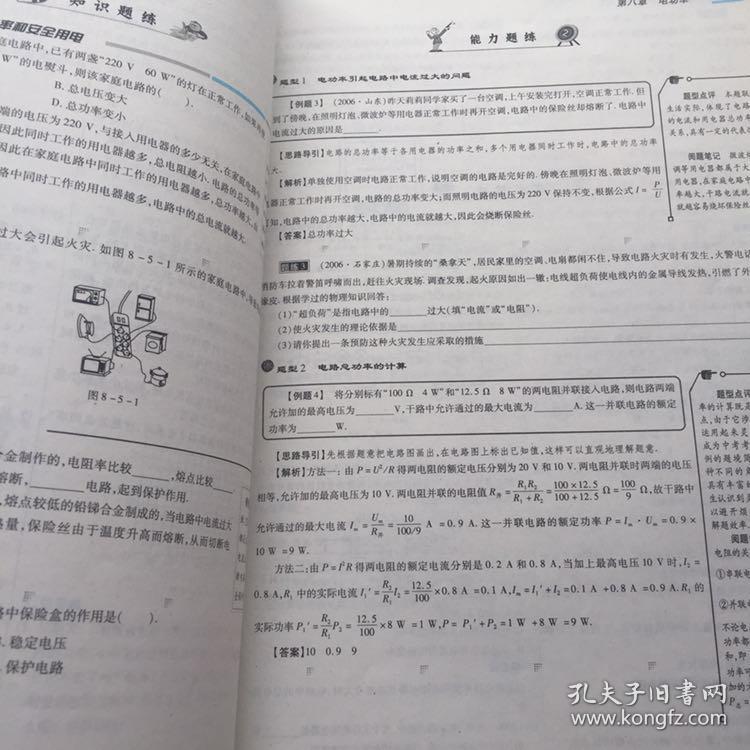 知识题练
率和安全用电
庭电路中,已有两盏“220 V 60 W”的灯在正常工作,如果再
W”的电熨斗,则该家庭电路的( ).
B. 总电压变大
D. 总功率变小
端的电压为 220 V,与接入用电器的多少无关,在家庭电路中
因此同时工作的用电器越多,总电阻越小,电路的总功率等
因此在家庭电路中同时工作的用电器越多,总功率越大,
路中同时工作的用电器越多,电路中的总电流就越大.
过大会引起火灾. 如图 8-5-1 所示的家庭电路中,
图 8-5-1
金制作的,电阻率比较______,熔点比较______
熔断,______电路,起到保护作用.
,熔点较低的铅锑合金制成的,当电路中电流过大
热量,保险丝由于温度升高而熔断,从而切断电
路中保险盒的作用是( ).
B. 稳定电压
. 保护电路
第八章 电功率
能力题练 2
题型 1 电功率引起电路中电流过大的问题
【例题 3】 (2006·山东)昨天莉莉同学家买了一台空调,上午安装完打开,空调正常工作. 但
到了傍晚,在照明灯泡、微波炉等用电器正常工作时再开空调,电路中的保险丝却熔断了. 电路中
电流过大的原因是______.
【思路导引】 电路的总功率等于各用电器的功率之和,多个用电器同时工作时,电路中的总功率
大.
【解析】 单独使用空调时电路正常工作,说明空调的电路是完好的. 傍晚在照明灯泡、微波炉等用
器正常工作时再开空调,电路的总功率变大;而照明电路的电压为 220 V 保持不变,根据公式 I = P/U
可知,电路中的总功率越大,电路中的电流就越大,因此会烧断保险丝.
【答案】 总功率过大
题练 3 (2006·石家庄)暑期持续的“桑拿天”,居民家里的空调、电扇都闲不住,导致电路火灾时有发生,火警电话
消防车拉着警笛呼啸而出,赶往火灾现场. 调查发现,起火原因如出一辙:电线超负荷使电线内的金属导线发热,引燃了外
橡皮. 根据学过的物理知识回答:
(1)“超负荷”是指电路中的______过大(填“电流”或“电阻”).
(2)使火灾发生的理论依据是______
(3)请你提出一条预防这种火灾发生应采取的措施______
题型 2 电路总功率的计算
【例题 4】 将分别标有“100 Ω 4 W”和“12.5 Ω 8 W”的两电阻并联接入电路,则电路两端
允许加的最高电压为______V,干路中允许通过的最大电流为______A. 这一并联电路的额定
功率为______W.
【思路导引】 先根据题意把电路图画出,在电路图上标出已知值,这样可以直观地理解题意.
【解析】 方法一:由 P = U²/R 得两电阻的额定电压分别为 20 V 和 10 V. 两电阻并联时两端的电压
相等,允许加的最高电压为 10 V. 两电阻并联的电阻值 R并 = R₁R₂/(R₁+R₂) = 100×12.5/(100+12.5) Ω = 100/9 Ω,故干路中
允许通过的最大电流 Iₘ = Uₘ/R并 = 10/(100/9) A = 0.9 A. 这一并联电路的额定功率 P = Iₘ·Uₘ = 0.9×
10 W = 9 W.
方法二:由 P = I²R 得两电阻的额定电流分别是 0.2 A 和 0.8 A,当加上最高电压 10 V 时,I₂ =
0.8 A,R₁ 中的实际电流 I₁′ = R₂/R₁ I₂ = 12.5/100 ×0.8 A = 0.1 A,Iₘ = I₁′ + I₂ = 0.1 A + 0.8 A = 0.9 A. R₁ 的
实际功率 P₁′ = R₂/R₁ P₂ = 12.5/100 ×8 W = 1 W,P = P₁′ + P₂ = 1 W + 8 W = 9 W.
【答案】 10 0.9 9
题型点评 本题联
生活实际,体现了电路
的电流和用电器总功率
关系,具有一定的代表
阅题笔记 微波炉
调等用电器都属于大
用电器,在家庭电路中
率越大,干路电流就
就越容易烧坏保险丝
题型点评
率的计算既是
点,由于它涉
运用起来灵
成为中考考
例的题境简
种不同的角
具有丰富的
生认识到
以避开烦
解题效率.
阅题
电阻的关
①串联电
②并联电
不论电
功率都
和,即
功率可
加的大
P总 =
孔夫子旧书网
www.kongfz.com